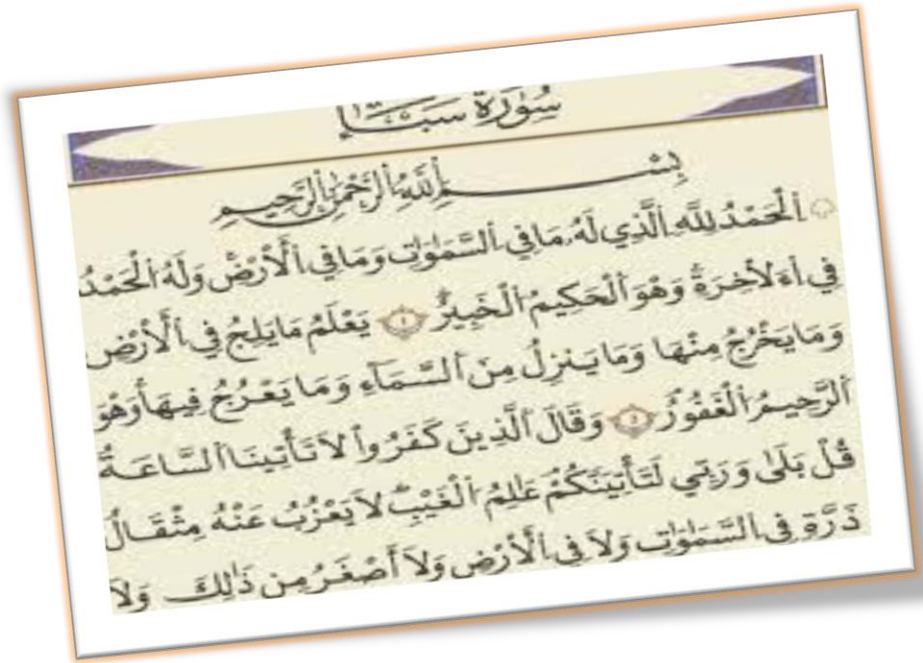 سُورَةُ سَبَـــإٍ
بِسْــــــــمِ اِللَّهِ اِلرَّحْمَٰنِ اِلرَّحِيمِ
اِ۬لْحَمْدُ لِلَّهِ اِ۬لَّذِي لَهُۥ مَا فِي اِ۬لسَّمَٰوَٰتِ وَمَا فِي اِ۬لَأرْضِۖ وَلَهُ اُ۬لْحَمْدُ
فِي اِ۬ءَلأخِرَةِۖ وَهْوَ اَ۬لْحَكِيمُ اُ۬لْخَبِيرُۖ ۝١ يَعْلَمُ مَا يَلِجُ فِي اِ۬لَأرْضِ
وَمَا يَخْرُجُ مِنْهَا وَمَا يَنزِلُ مِنَ اَ۬لسَّمَآءِ وَمَا يَعْرُجُ فِيهَاۖ وَهْوَ
اَ۬لرَّحِيمُ اُ۬لْغَفُورُۖ ۝٢ وَقَالَ اَ۬لذِينَ كَفَرُواْ لَا تَأْتِينَا اَ۬لسَّاعَةُ
قُلْ بَلَىٰ وَرَبِّي لَتَأْتِيَنَّكُمْ عَٰلِمُ اُ۬لْغَيْبِۖ لَا يَعْزُبُ عَنْهُ مِثْقَالُ
ذَرَّةٖ فِي اِ۬لسَّمَٰوَٰتِ وَلَا فِي اِ۬لَأرْضِ وَلَا أَصْغَرُ مِن ذَٰلِكَ وَلَا